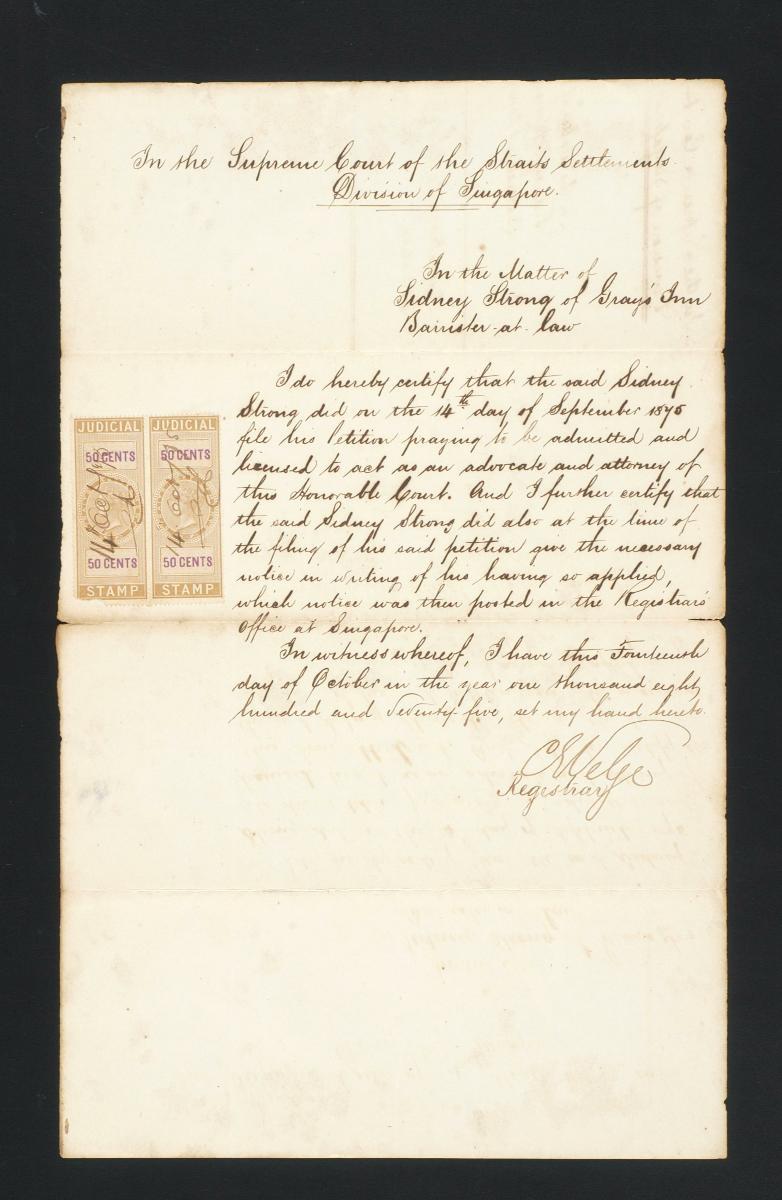 In the Supreme Court of the Straits Settlements.
Division of Singapore.
In the Matter of
Sidney Strong of Gray's Inn
Barrister-at-law
I do hereby certify that the said Sidney
Strong did on the 14th day of September 1875
file his Petition praying to be admitted and
licensed to act as an advocate and attorney of
this Honorable Court. And I further certify that
the said Sidney Strong did also at the time of
the filing of his said petition give the necessary
notice in writing of his having so applied,
which notice was then posted in the Registrar's
Office at Singapore.
In witness whereof, I have this Fourteenth
day of October in the year one thousand eight
hundred and Seventy-five, set my hand hereto.
C E Velge
Registrar
JUDICIAL
50 CENTS
14 Oct /75
50 CENTS
STAMP
JUDICIAL
50 CENTS
14 Oct /75
50 CENTS
STAMP